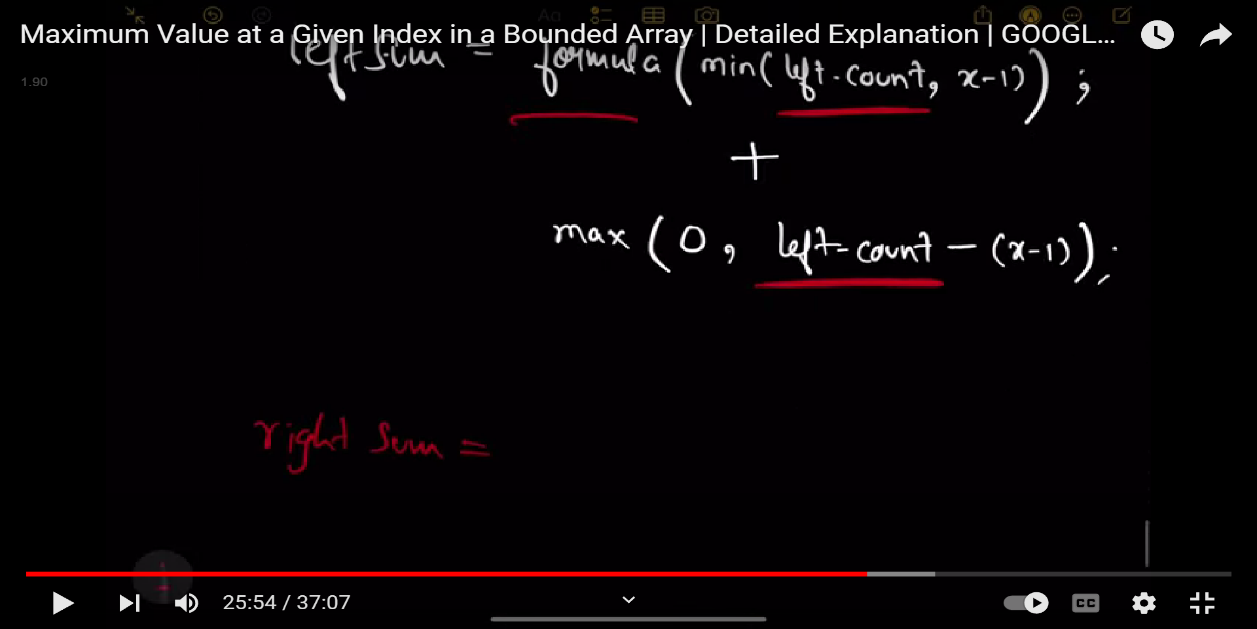 Maximum Value at a Given Index in a Bounded Array | Detailed Explanation | GOOGL...
1.90
Aa
left sum = formula (min(left-count, x-1)) ;
+
max (0, left-count - (x-1));
right sum =
25:54 / 37:07
CC